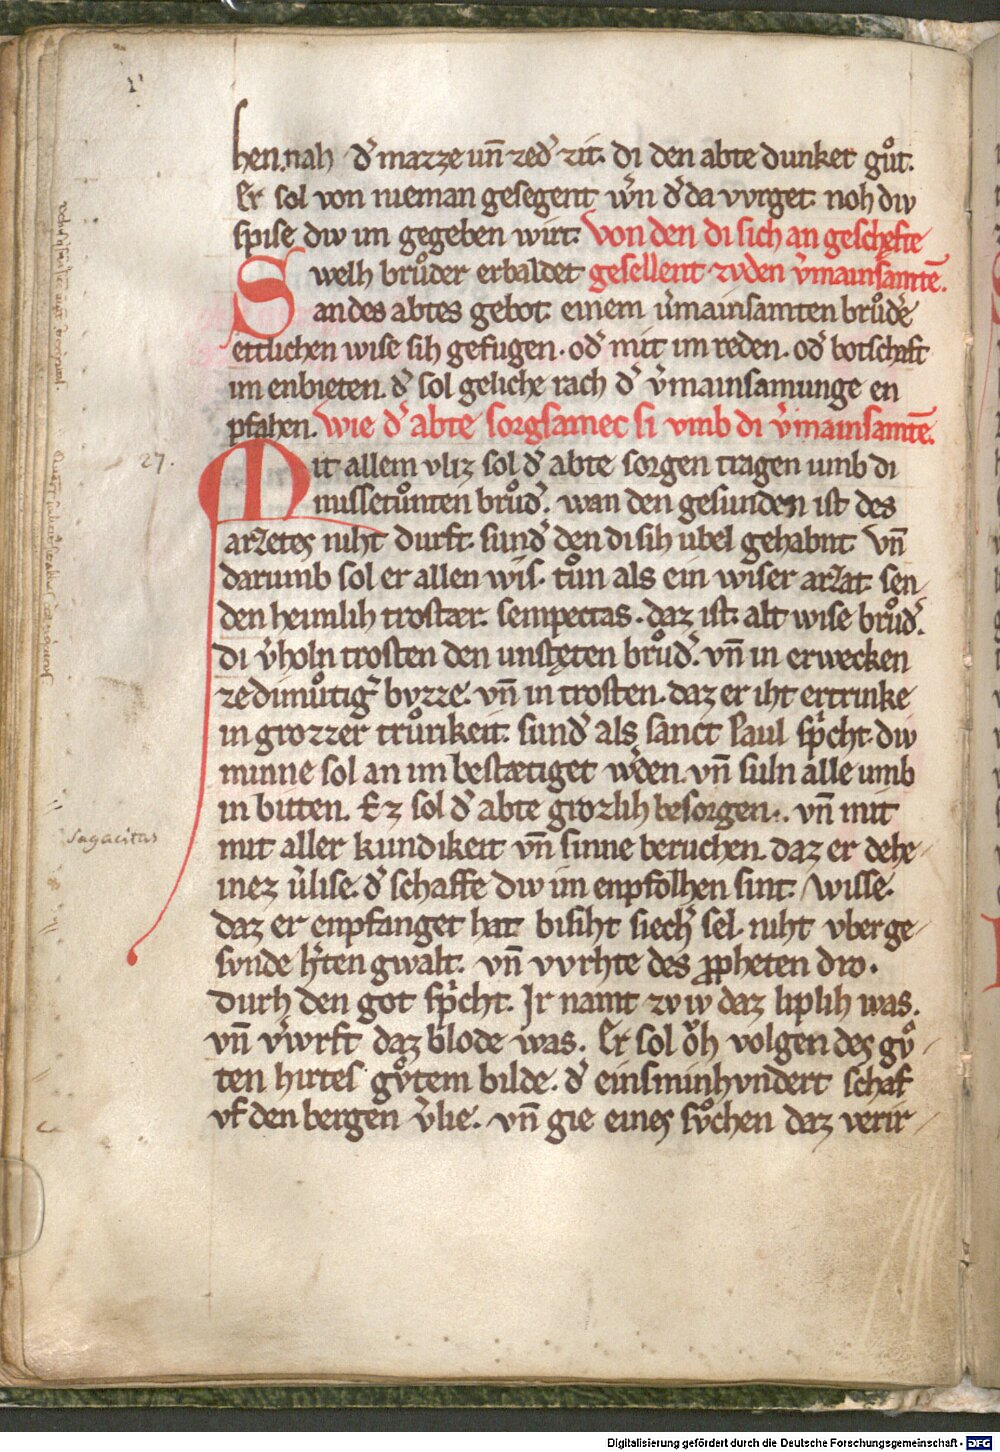 hen. nah d̛ mazze un̄ zed̛ zit. di den abte dunket gůt.
Er sol von nieman gesegent w̛n d̛ da vvrget. noh div
spise div im gegeben wirt. Von den di sich an geschefte
Swelh brůder erbaldet gesellent zvden v̛mainsamtē.
an des abtes gebot. einem v̛mainsamten brůd̛e
ettlichen wise sih gefugen. od̛ mit im reden. od̛ botschaft
im enbieten. d̛ sol geliche rach d̛ v̛mainsamunge en
pfahen. Wie d̛ abte sorgsamec si vmb di v̛mainsamtē.
27.
Mit allem vliz sol d̛ abte sorgen tragen umb di
missetůnten brůd̛. wan den gesunden ist des
arzetes niht durft. sund̛ den di sih ubel gehabnt. Vn̄
darumb sol er allen wis. tůn als ein wiser arzat. sen
den heimlih trostær. sempectas. daz ist. alt wise brůd̛.
di v̛holn trosten den unstęten brůd̛. vn̄ in erwecken
ze dimůtig̛ byzze. vn̄ in trosten. daz er iht ertrinke
in grozzer trůrikeit. sund̛ als sanct Paul sp̛cht. div
minne sol an im bestætiget w̛den. vn̄ suln alle umb
in bitten. Ez sol d̛ abte grozlih besorgen. vn̄ mit
Sagacitas
mit aller kundikeit vn̄ sinne beruchen. daz er dehe
inez v̛lise. d̛ schaffe div im enpfolhen sint. Wisse.
daz er enpfanget hat bisiht siech̛ sel. niht vber ge
svnde h̛ten gwalt. vn̄ vvrhte des ꝓpheten dro.
durh den got sp̛cht. Ir namt zv iv daz liplih was.
vn̄ v̛wrft daz blode was. Er sol ǒh volgen des gů
ten hirtes gůtem bilde. d̛ einsminhvndert schaf
vf den bergen v̛lie. vn̄ gie eines sůchen daz verir
Digitalisierung gefördert durch die Deutsche Forschungsgemeinschaft - DFG